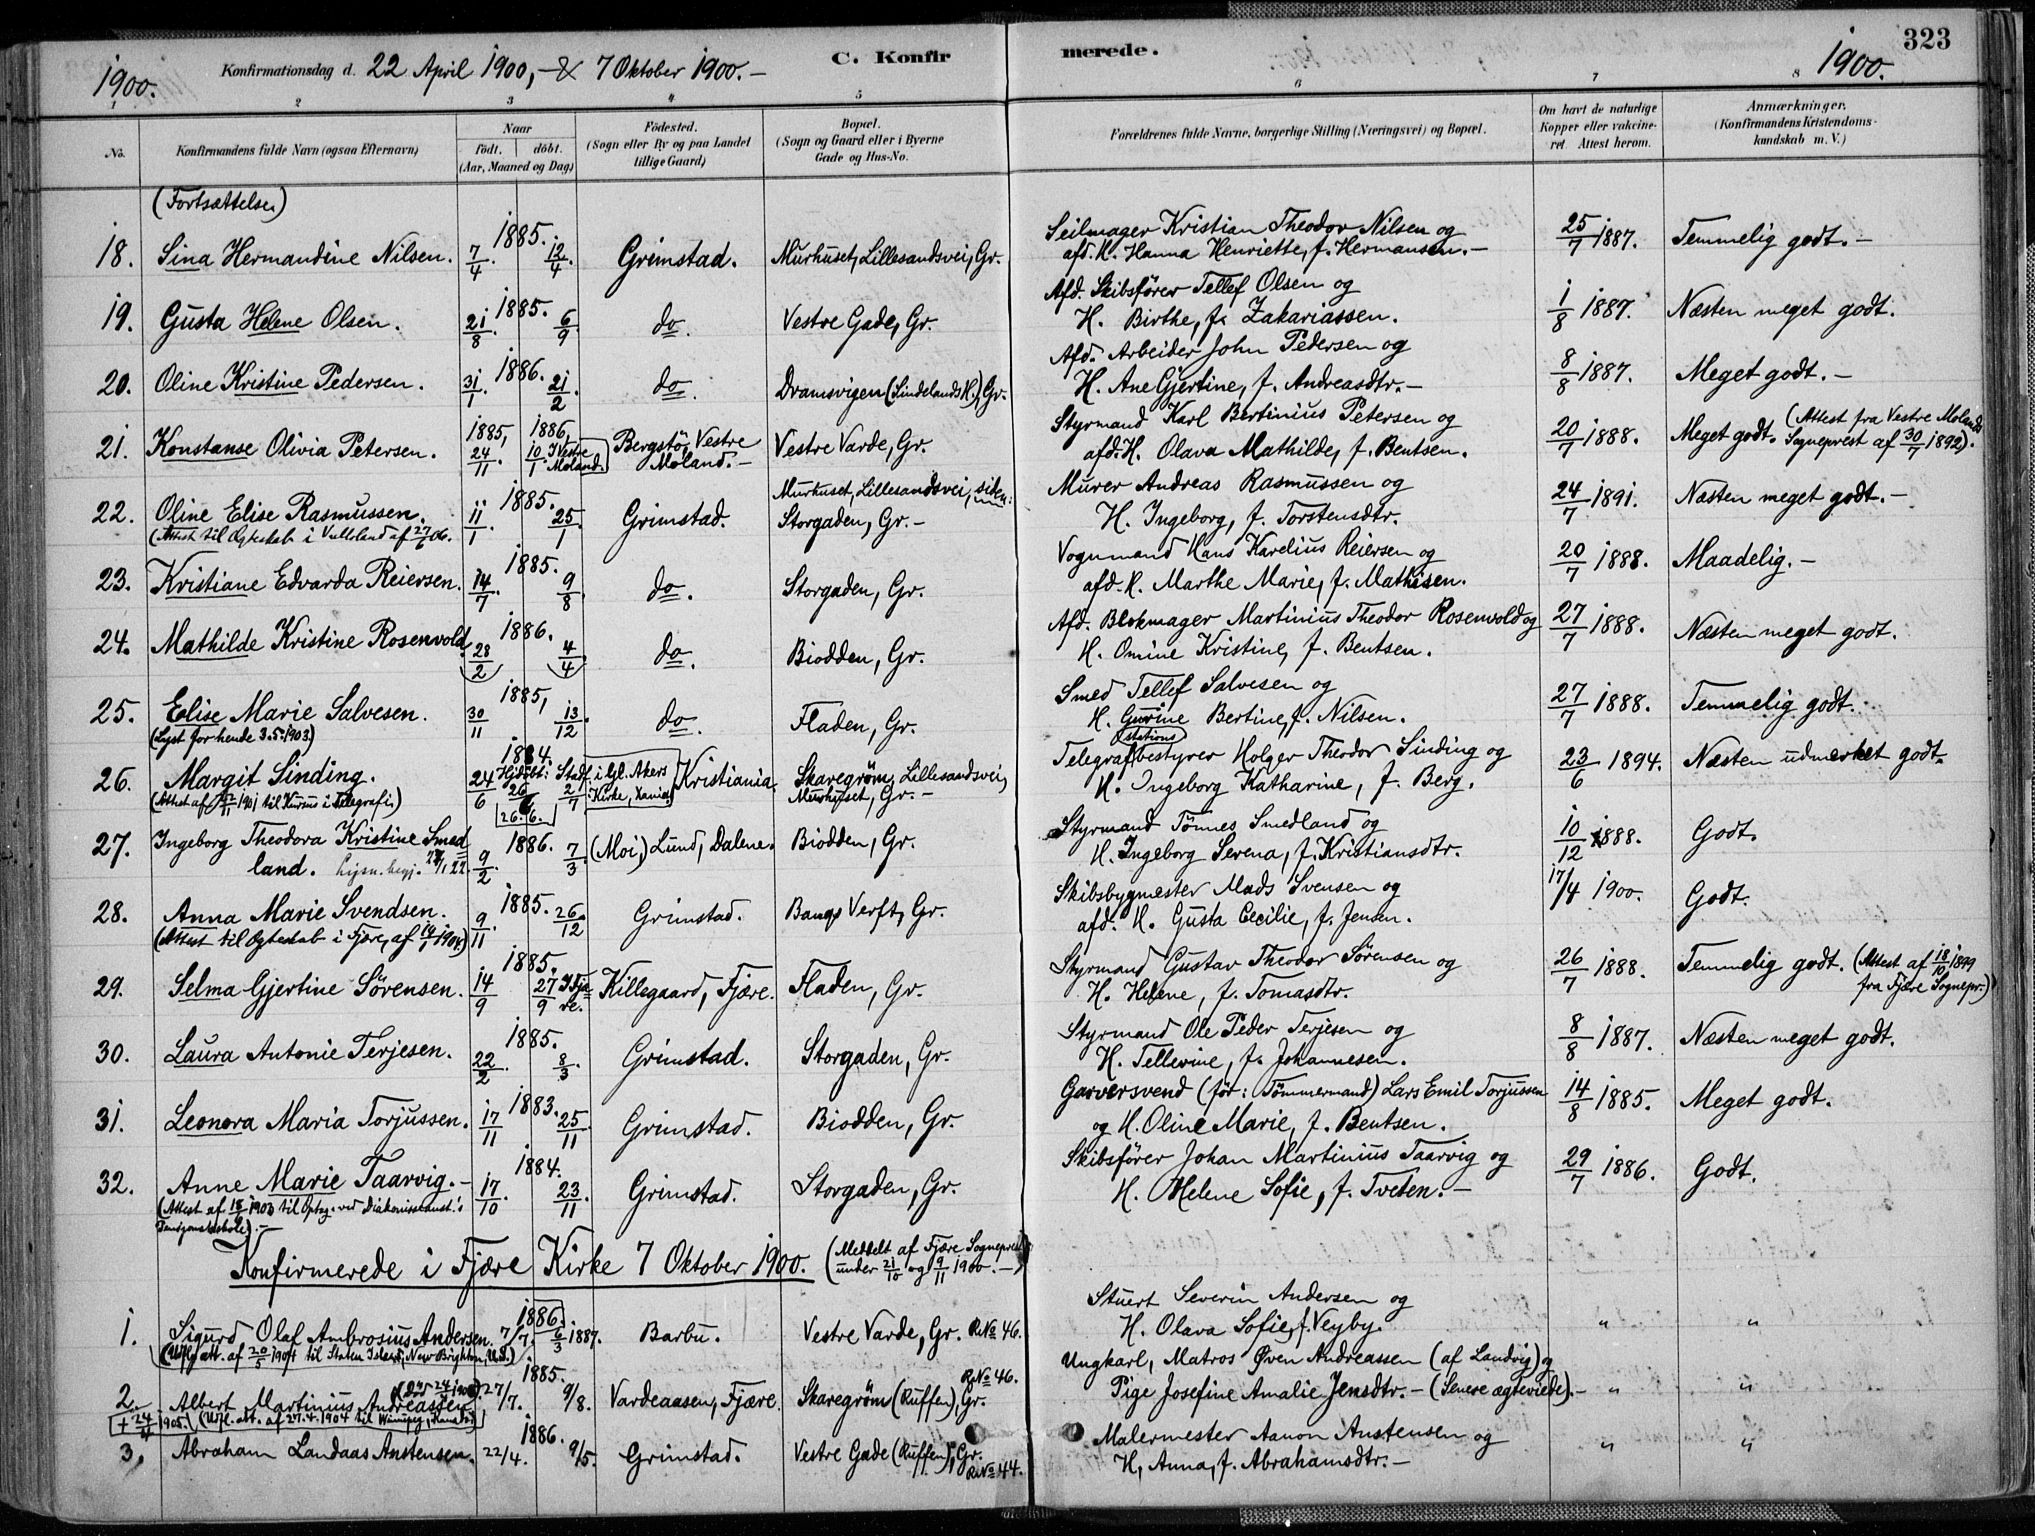 1900. Konfirmationsdag d. 22 April 1900, - & 7 Oktober 1900. - C. Konfirmerede. 1900. 323
1 2 3 4 5 6 7 8
No. Konfirmandens fulde Navn (ogsaa Efternavn) Naar født. døbt. (Aar, Maaned og Dag) Fødested. (Sogn eller By og paa Landet tillige Gaard) Bopæl. (Sogn og Gaard eller i Byerne Gade og Hus-No. Forældrenes fulde Navne, borgerlige Stilling (Næringsvei) og Bopæl. Om havt de naturlige Kopper eller vakcineret. Attest herom. Anmærkninger. (Konfirmandens Kristendomskundskab m. V.)
(Fortsættelse.)
18. Sina Hermandine Nilsen. 1885. 7/4. 12/4. Grimstad. Murhuset, Lillesandsvei, Gr. Seilmager Kristian Theodor Nilsen og
afd. H. Hanna Henriette, f. Hermansen. - 25/7 1887. Temmelig godt. -
19. Gusta Helene Olsen. 1885. 21/8 6/9 do. Vestre Gade, Gr. Afd. Skibsfører Tellef Olsen og
H. Birthe, f. Zakariassen. 1/8 1887. Næsten meget godt.
20. Oline Kristine Pedersen. 1886. 31/1. 21/2. do. Dramsvigen (Lindelands H.), Gr. Afd. Arbeider John Pedersen og
H. Ane Gjertine, f. Andreasdtr. - 8/8 1887. Meget godt. -
21. Konstanse Olivia Petersen. 1885, 24/11. 1886, 10/1. I Vestre Moland. Bergstø, Vestre Moland. - Vestre Varde, Gr. Styrmand Karl Bertinius Petersen og
afd. H. Olava Mathilde, f. Bentsen. 20/7 1888. Meget godt. (Attest fra Vestre Molands Sogneprest af 30/7 1892).
22. Oline Elise Rasmussen. 1885. 11/1. 25/1 Grimstad. Murhuset, Lillesandsvei, siden: Storgaden, Gr. - Murer Andreas Rasmussen og
H. Ingeborg, f. Torstensdtr. 24/7 1891. Næsten meget godt. -
(Attest til Ægteskab i af 27/6 06.
23. Kristiane Edvarda Reiersen. 1885. 14/7. 9/8. do. Storgaden, Gr. Vognmand Hans Karelius Reiersen og
afd. H. Marthe Marie, f. Mathisen. 20/7 1888. Maadelig. -
24. Mathilde Kristine Rosenvold. 1886. 28/2 4/4 do. Biodden, Gr. Afd. Blokmager Martinius Theodor Rosenvold og
H. Omine Kristine, f. Bentsen. 27/7 1888. Næsten meget godt.
25. Elise Marie Salvesen. 1885, 30/11 13/12. do. Fladen, Gr. Smed Tellef Salvesen og
H. Gurine Bertine, f. Nilsen. 27/7 1888. Temmelig godt.
(Lyst for hende 3.5.1903.)
26. Margit Sinding. 1884. 24/6 Hjdøbt: 26/6 26.6. Stadf. 2/7 i Gl. Akers Kirke, Xania. Kristiania. Skaregrøm, Lillesandsvei, Murhuset, Gr. - Telegrafstationsbestyrer Holger Theodor Sinding og
H. Ingeborg Katharine, f. Berg. 23/6 1894. Næsten udmerket godt.
(Attest af 1901 til Kursus i Telegrafi.)
27. Ingeborg Theodora Kristine Smedland. 1886. 9/2. 7/3. (Moi,) Lund, Dalene. Biodden, Gr. Styrmand Tønnes Smedland og
H. Ingeborg Serena, f. Kristiansdtr. 10/12 1888. Godt.
28. Anna Marie Svendsen. 1885. 9/11. 26/12. Grimstad. Bangs Verft, Gr. Skibsbygmester Mads Svensen og
afd. H. Gusta Cecilie, f. Jensen. 17/4 1900. Godt.
(Attest til Ægteskab i Fjære, af 1904.)
29. Selma Gjertine Sørensen. 1885. 14/9 27/9 I Fjære. Killegaard, Fjære. Fladen, Gr. Styrmand Gustav Theodor Sørensen og
H. Helene, f. Tomasdtr. 26/7 1888. Temmelig godt. (Attest af 18/10 1899 fra Fjære Sognepr.)
30. Laura Antonie Terjesen. 1885. 22/2. 8/3. Grimstad. Storgaden, Gr. Styrmand Ole Peder Terjesen og
H. Tellevine, f. Johannesen. 8/8 1887. Næsten meget godt.
31. Leonora Maria Torjussen. 1883. 17/11 25/11 Grimstad. Biodden, Gr. Garversvend (før: Tømmermand) Lars Emil Torjussen
og H. Oline Marie, f. Bentsen. 14/8 1885. Meget godt.
32. Anne Marie Taarvig. - 1884. 17/10. 23/11. Grimstad. Storgaden, Gr. Skibsfører Johan Martinius Taarvig og
H. Helene Sofie, f. Tveten. - 29/7 1886. Godt.
(Attest af 1903 til Optag. ved Diakonisseanst.'s
Konfirmerede i Fjære Kirke 7 Oktober 1900. (Meddelt af Fjære Sogneprest under 21/10 og 9/11 1900. -)
1. Sigurd Olaf Ambrosius Andersen. 1886. 7/7. 6/3 1887. Barbu. Vestre Varde, Gr. R.No 46. Stuert Severin Andersen og
H. Olava Sofie, f. Veyby. " "
(Udfl. att. af 20/5 1904 til Staten Island, New Brighton, U.S.)
2. Albert Martinius Andreassen. 1885. 27/7. 9/8. Vardeaasen, Fjære. Skaregrøm (Ruffen), Gr. R.No 46. Ungkarl, Matros Øven Andreassen (af Landvig) og
Pige Josefine Amalie Jensdtr. - (Senere ægteviede). - " "
+ 24/4 1905. (Udfl. att. af 27.4.1904 til Winnipeg, Kanada)
3. Abraham Landaas Anstensen. 1886. 22/4. 9/5. Grimstad. Vestre Gade (Ruffen), Gr. R.No 44. Malermester Aanon Austensen og
H. Anna, f. Abrahamsdtr. - " "